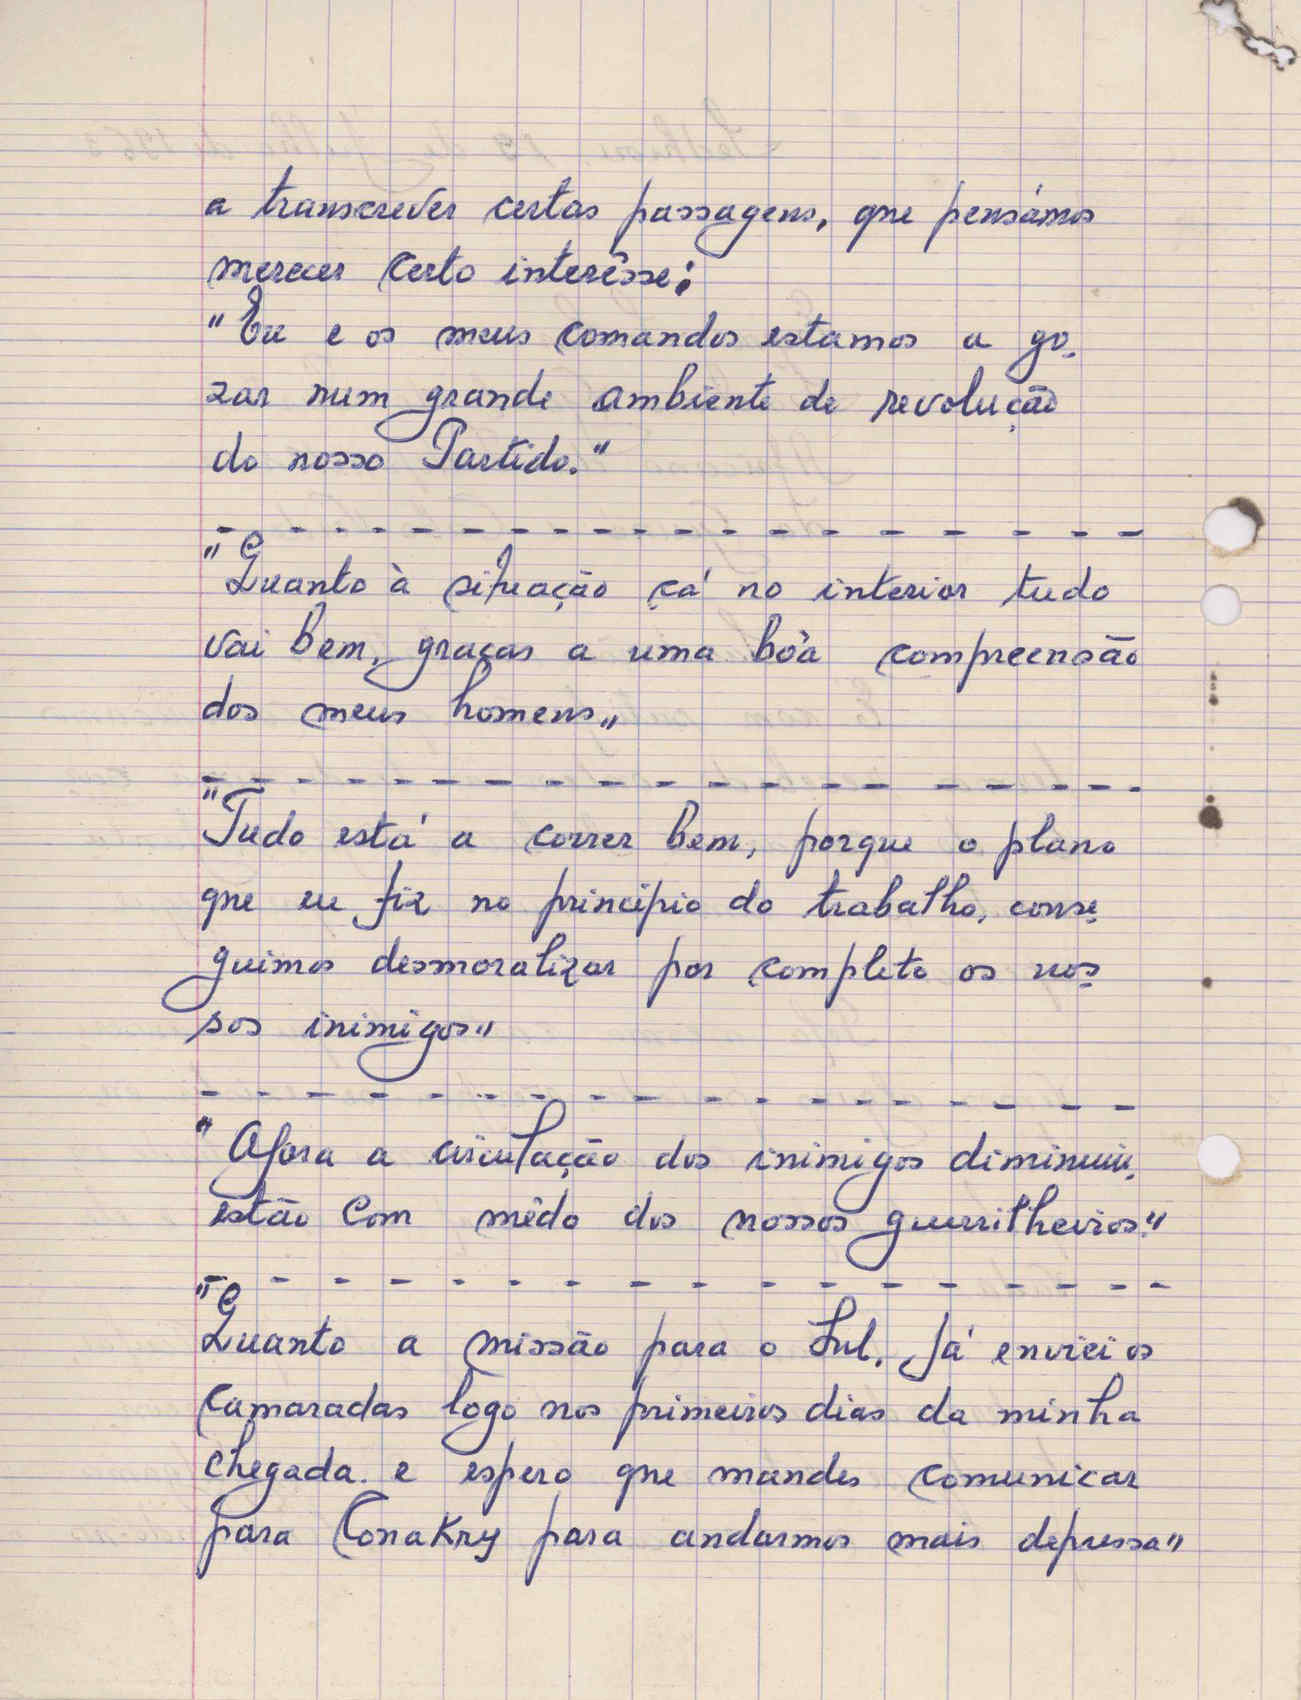 a transcrever certas passagens, que pensámos
merecer certo interêsse:
"Eu e os meus comandos estamos a go-
zar num grande ambiente de revolução
do nosso Partido."
"Quanto à situação cá no interior tudo
vai bem, graças a uma bôa compreensão
dos meus homens"
"Tudo está a correr bem, porque o plano
que eu fiz no princípio do trabalho, conse-
guimos desmoralizar por completo os nos-
sos inimigos"
"Agora a circulação dos inimigos diminuiu,
estão com mêdo dos nossos guerrilheiros."
"Quanto a missão para o Sul. Já enviei os
camaradas logo nos primeiros dias da minha
chegada. e espero que mandes comunicar
para Conakry para andarmos mais depressa"